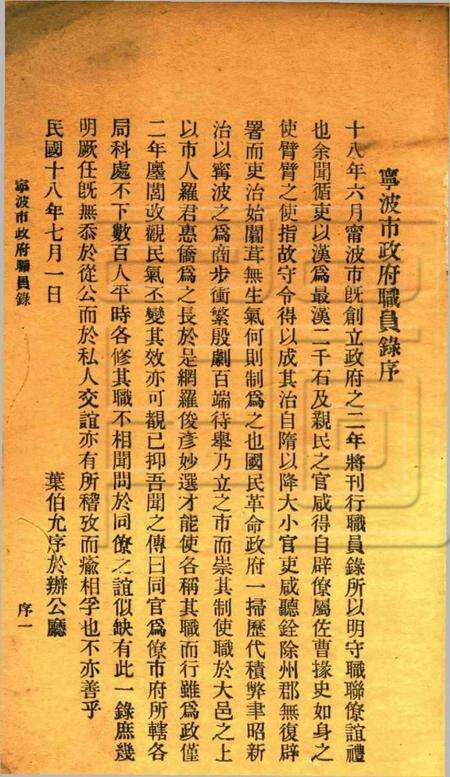 寧波市政府職員錄序
十八年六月甯波市旣創立政府之二年將刊行職員錄所以明守職聯僚誼禮
也余聞循吏以漢爲最漢二千石及親民之官咸得自辟僚屬佐曹掾史如身之
使臂臂之使指故守令得以成其治自隋以降大小官吏咸聽銓除州郡無復辟
署而吏治始闒茸無生氣何則制爲之也國民革命政府一掃歷代積弊聿昭新
治以甯波之爲商步衝繁殷劇百端待舉乃立之市而崇其制使職於大邑之上
以市人羅君惠僑爲之長於是網羅俊彥妙選才能使各稱其職而行雖爲政僅
二年廛閭改觀民氣丕變其效亦可覩已抑吾聞之傳曰同官爲僚市府所轄各
局科處不下數百人平時各修其職不相聞問於同僚之誼似缺有此一錄庶幾
明厥任旣無忝於從公而於私人交誼亦有所稽攷而瘉相孚也不亦善乎
民國十八年七月一日
葉伯允序於辦公廳
寧波市政府職員錄
序一